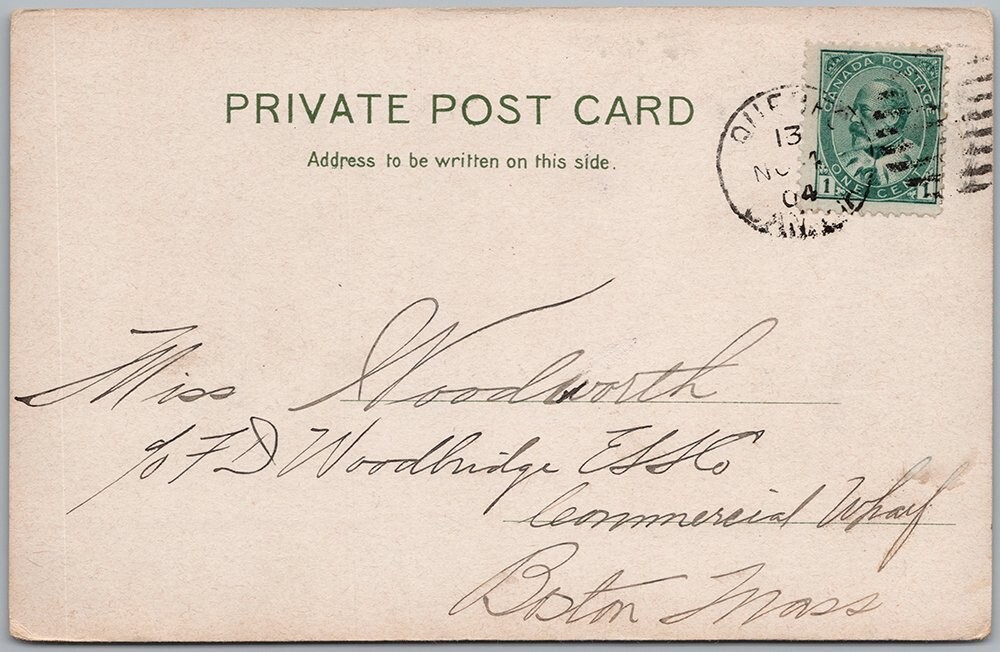 PRIVATE POST CARD
Address to be written on this side.
CANADA POSTAGE
1 ONE CENT 1
13
04
Miss Woodworth
c/o F D Woodbridge ESSCo
Commercial Wharf
Boston Mass